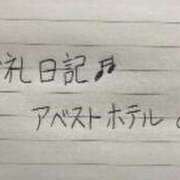 礼日記♬
アベストホテル